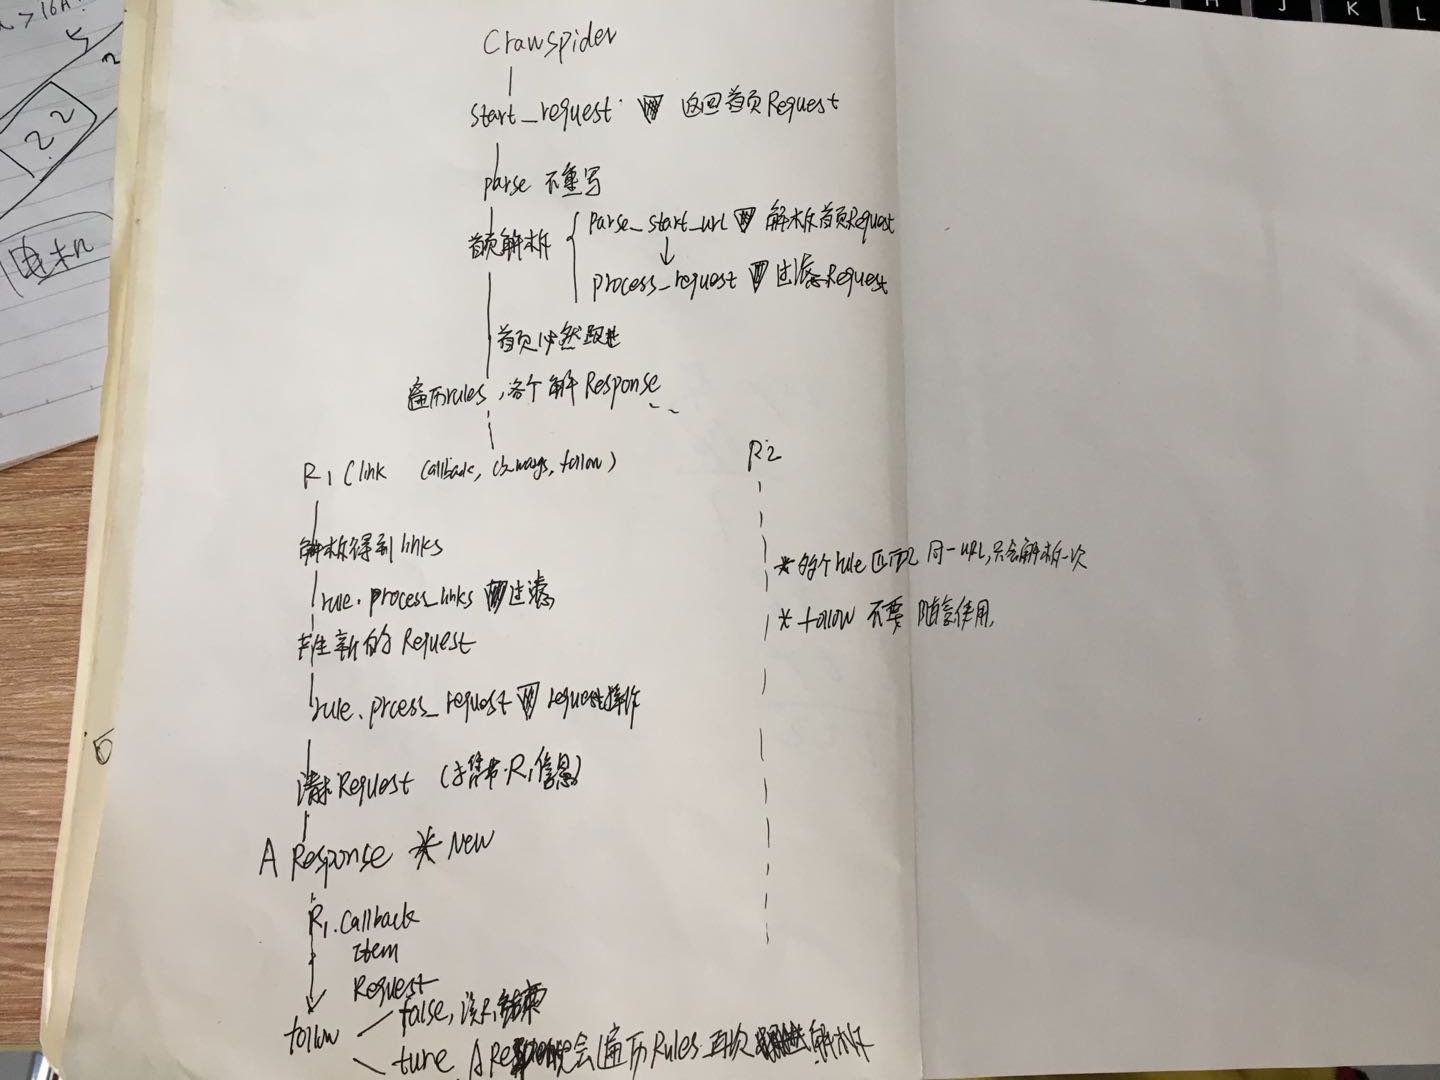 Crawspider
start_request 返回首页Request
parse 不重写
首页解析
parse_start_url 解析首页Request
process_request 过滤Request
首页必然跟进
遍历rules, 各个解Response
R1 (link callback, cb_kwargs, follow)
R2
解析得到links
rule.process_links 过滤
产生新的Request
rule.prcess_request request操作
请求Request (携带R1信息)
A Response * New
R1.callback
Item
Request
follow
false, 该R1结束
ture A Response会遍历Rules 再次 解析
* 多个rule匹配同一URL,只会解析一次
* follow 不要随意使用.
22
电机
J
K
L